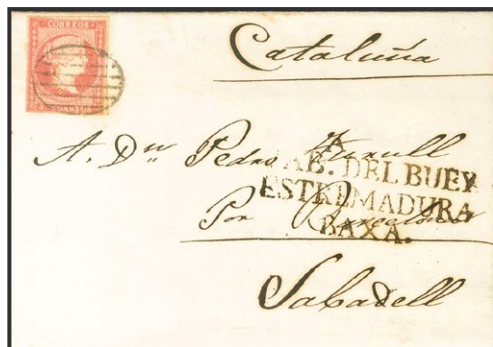 CORREOS
Cataluña
A. Dn Pedro Turull
CAB. DEL BUEY
ESTREMADURA
BAXA.
Por Barcelona
Sabadell